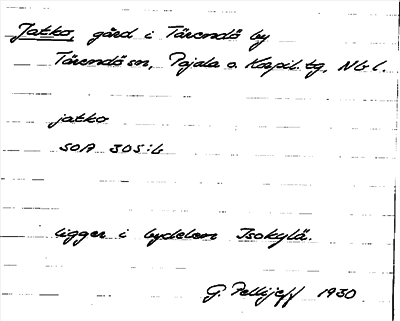 Jatko, gård i Tärendö by
Tärendö sn, Pajala o. Korpil. tg, Nb l.
jatko
SOA 305:6
ligger i bydelen Isokylä.
G. Pellijeff 1930